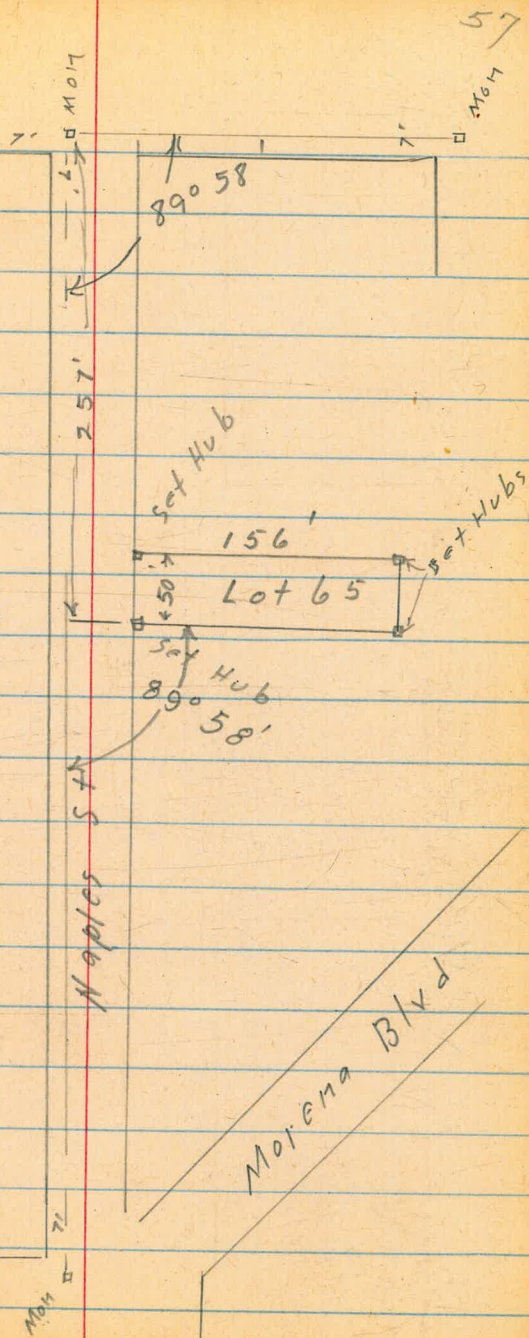 57
Mon
Mon
7'
7'
89° 58
257'
Set Hub
156'
Set Hubs
50'
Lot 65
Set Hub
89° 58'
Naples St
Morena Blvd
7'
Mon